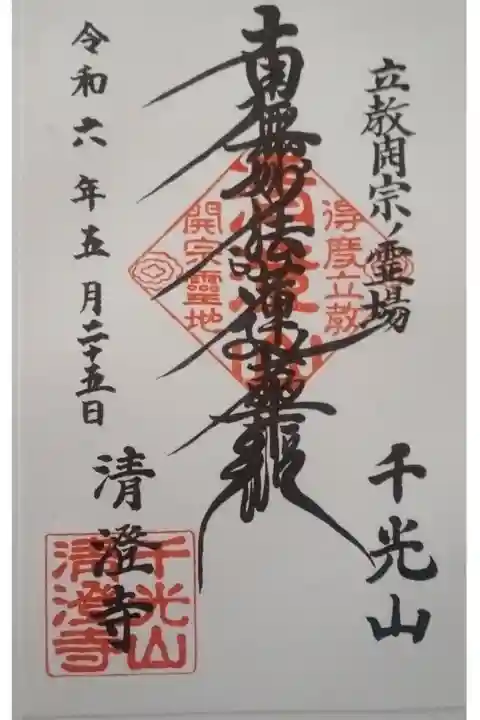 立教開宗ノ霊場
千光山
南無妙法蓮華経
得度立教
清澄山
開宗霊地
令和六年五月二十五日
清澄寺
千光山
清澄寺